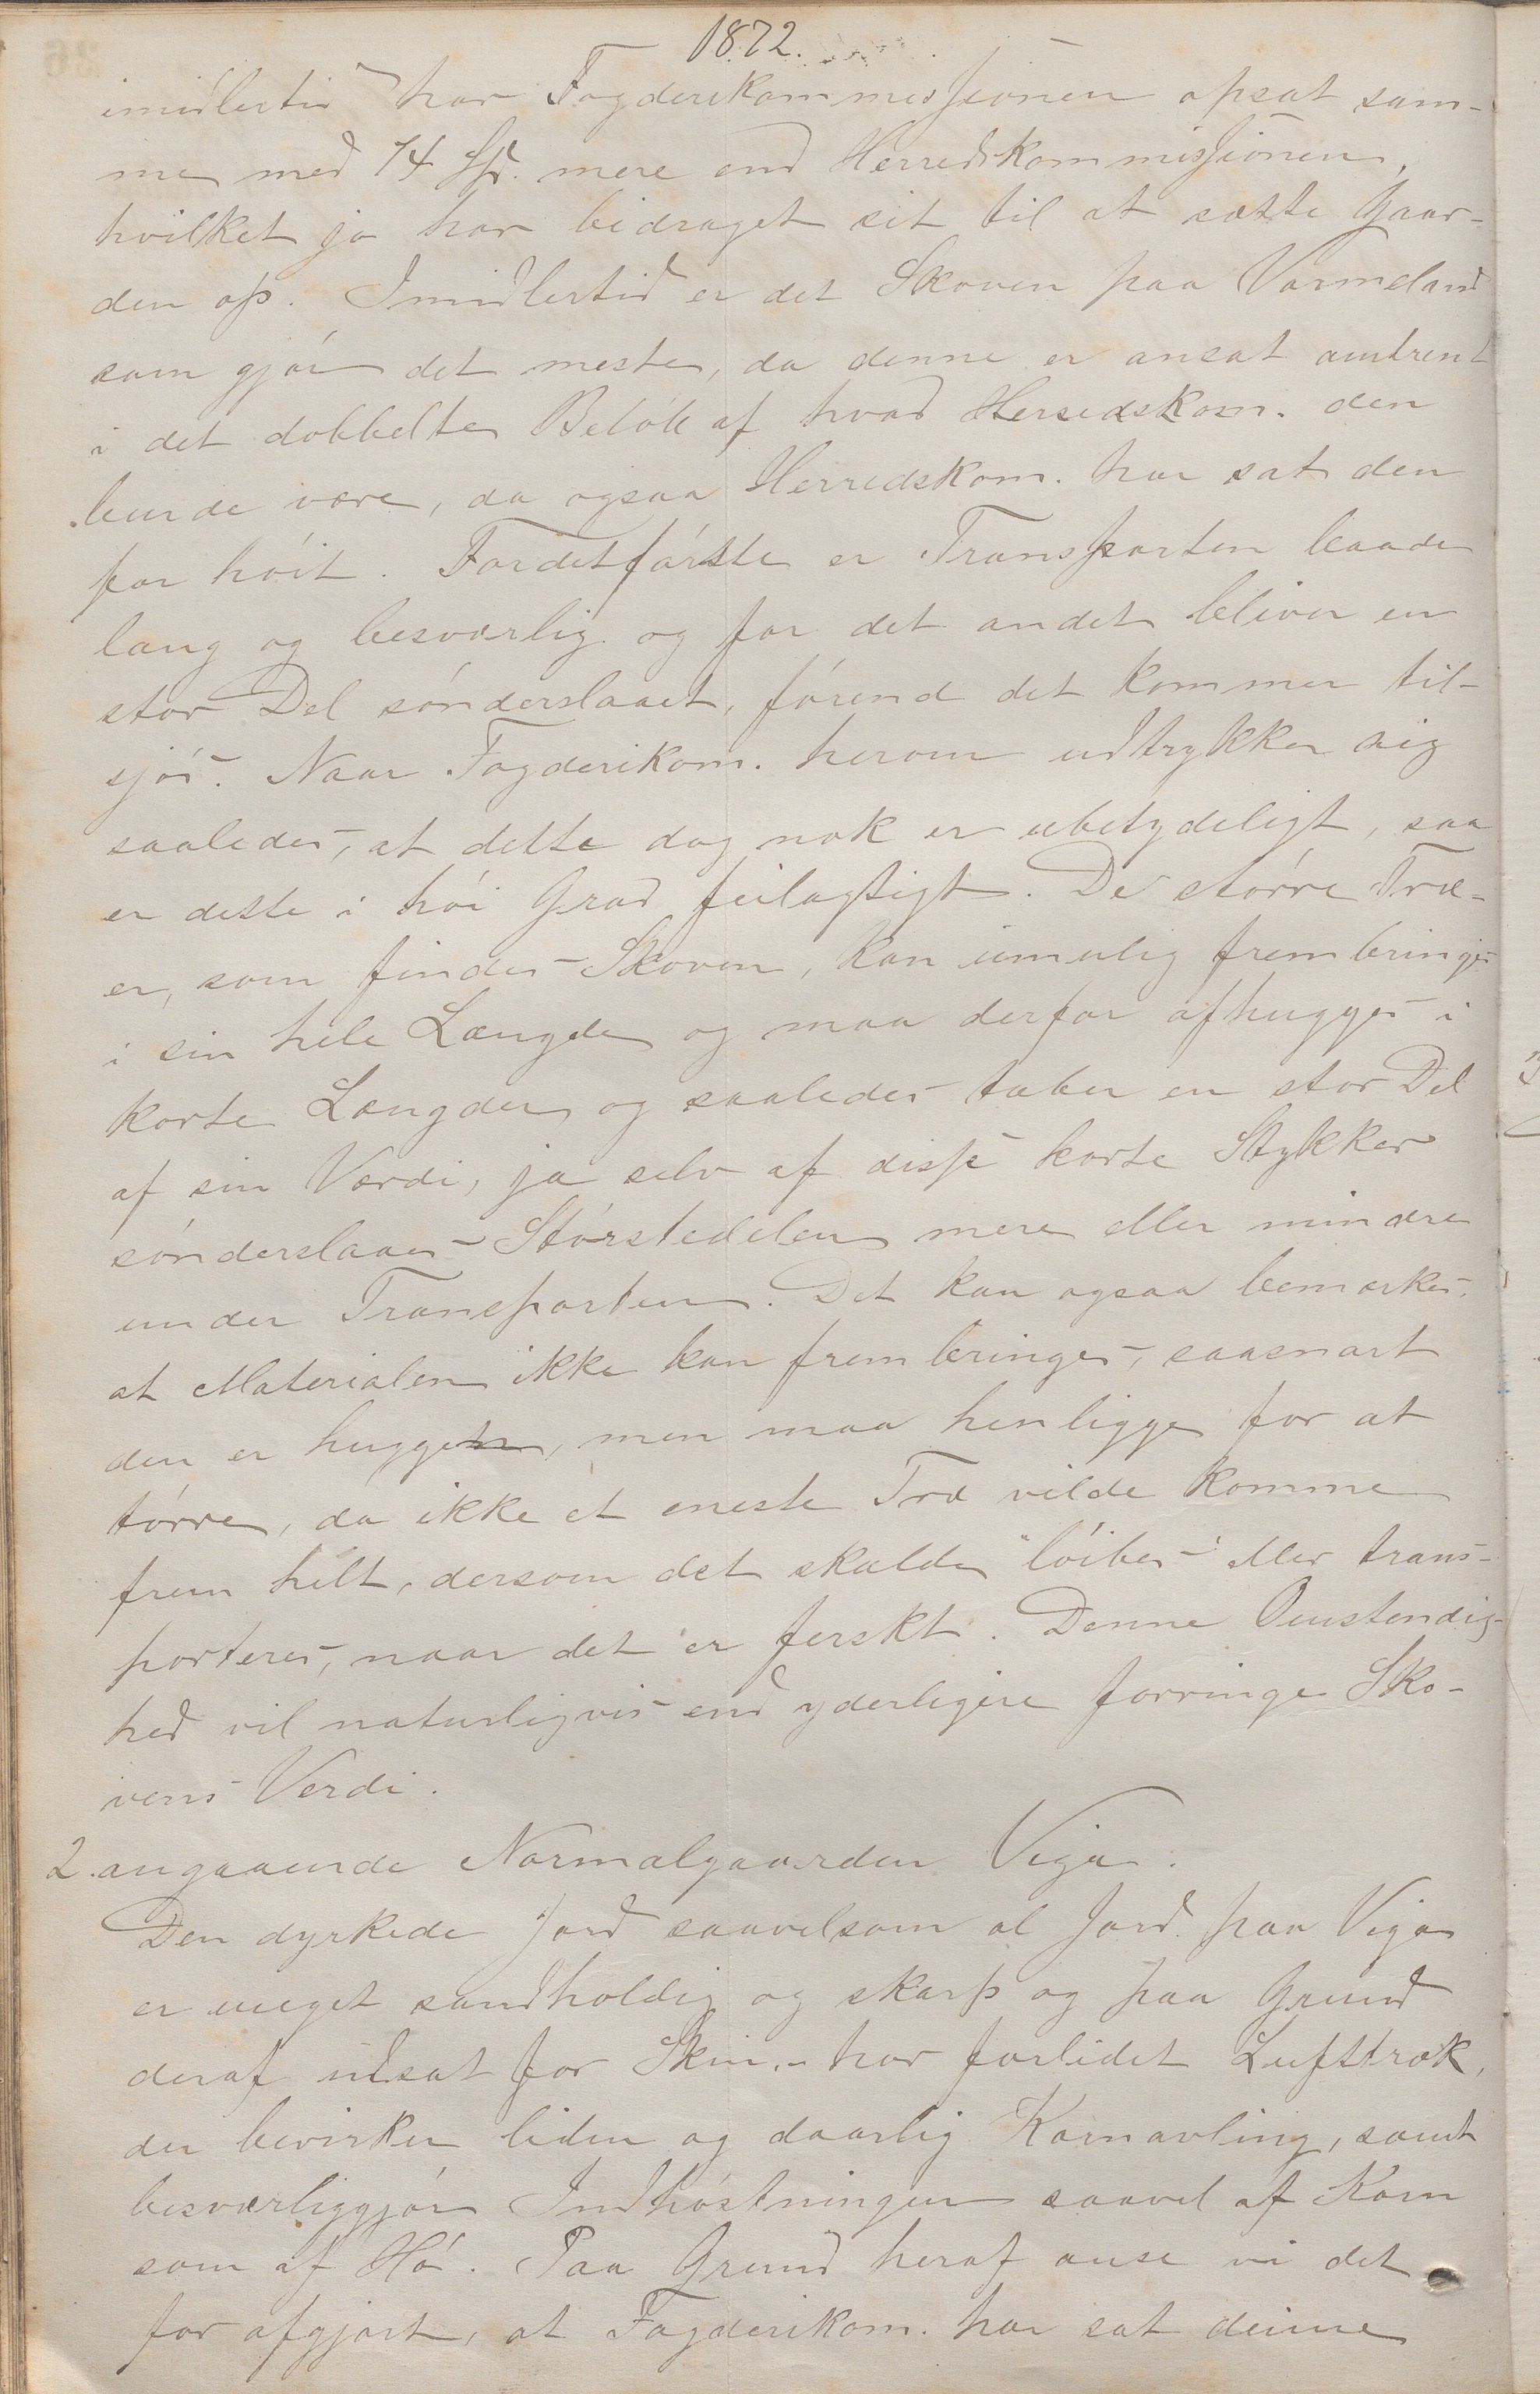 1872.
imidlertid har Fogderikommissionen opsat sam-
me med 74 Spd. mere end Herredskommissionen,
hvilket jo har bidraget sit til at sætte Gaar-
den op. Imidlertid er det Skoven paa Varmeland
som gjør det meste, da denne er ansat omtrent
i det dobbelte Beløb af hvad Herredskom. den
burde være, da ogsaa Herredskom. har sat den
for høit. Fordetførste er Transporten baade
lang og besværlig og for det andet bliver en
stor Del sønderslaaet, førend det kommer til-
sjøs. Naar Fogderikom. herom udtrykker sig
saaledes, at dette dog nok er ubetydeligt, saa
er dette i høi Grad feilagtigt. De større Træ-
er, som findes i Skoven, kan umulig frembringes
i sin hele Længde og maa derfor afhugges i
korte Længder og saaledes taber en stor Del
af sin Værdi, ja selv af disse korte Stykker
sønderslaaes Størstedelen mere eller mindre
under Transporten. Det kan ogsaa bemærkes,
at Materialen ikke kan frembringes, saasnart
den er hugget, men maa henligge for at
tørre, da ikke et eneste Træ vilde komme
frem helt, dersom det skulde "løibes" eller trans-
porteres, naar det er ferskt. Denne Omstendig-
hed vil naturligvis end yderligere forringe Sko-
vens Verdi.
2. angaaende Normalgaarden Viga.
Den dyrkede Jord saavelsom al Jord paa Viga
er meget sandholdig og skarp og paa Grund
deraf udsat for Skin, - har forlidet Lufttræk,
der bevirker liden og daarlig Kornavling, samt
besværliggjør Indhøstningen saavel af Korn
som af Hø. Paa Grund heraf anse vi det
for afgjort, at Fogderikom. har sat denne